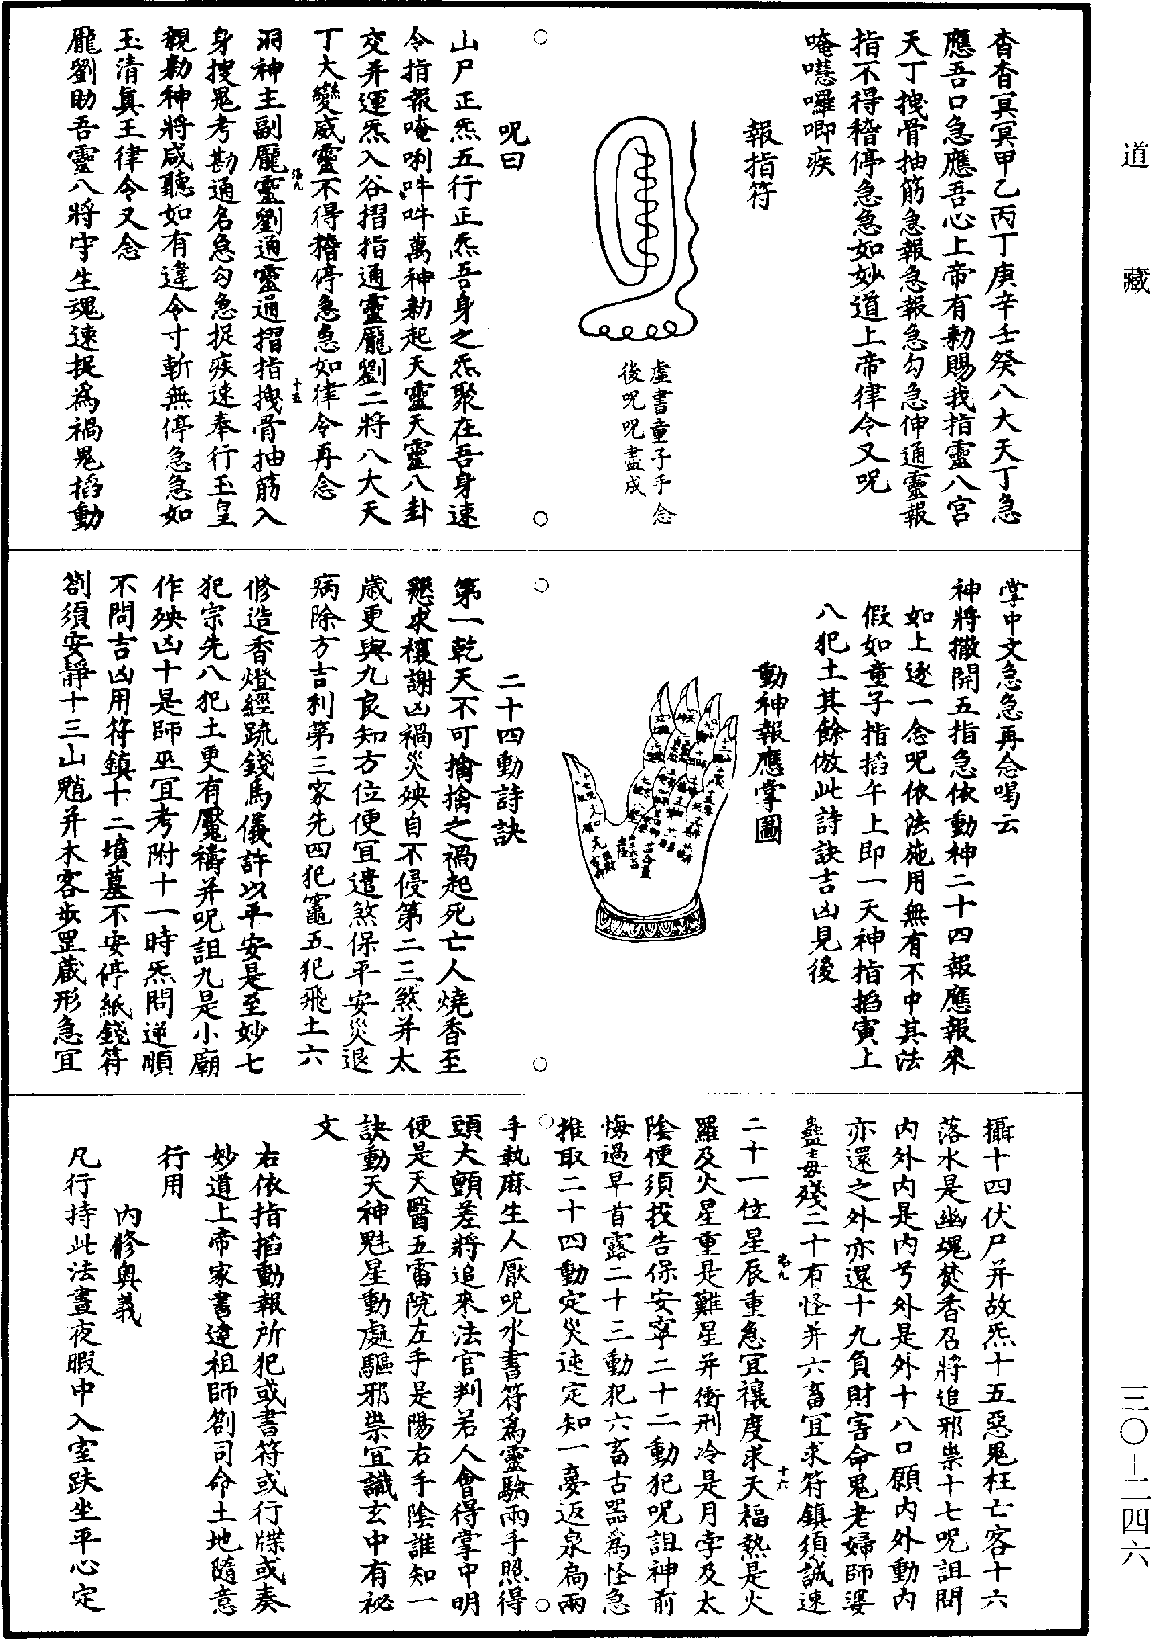 道藏
杳杳冥冥甲乙丙丁庚辛壬癸八大天丁急
應吾口急應吾心上帝有勑賜我指靈八宮
天丁拽骨抽筋急報急報急勾急伸通靈報
指不得稽停急急如妙道上帝律令又呪
唵㘕囉唧疾
報指符
虛書童子手念
後呪呪盡成
呪曰
山尸正炁五行正炁吾身之炁聚在吾身速
令指報唵唎吽吽萬神勑起天靈天靈八卦
交并運炁入谷摺指通靈龐劉二將八大天
丁大變威靈不得稽停急急如律令再念
洞神主副龐靈劉通靈通摺指拽骨抽筋入
身搜鬼考勘通名急勾急捉疾速奉行玉皇
親勑神將咸聽如有違令寸斬無停急急如
玉清真王律令又念
龐劉助吾靈八將守生魂速捉為禍鬼搯動
掌中文急急再念喝云
神將撒開五指急依動神二十四報應報來
如上逐一念呪依法施用無有不中其法
假如童子指搯午上即一天神指搯寅上
八犯土其餘倣此詩訣吉凶見後
動神報應掌圖
二十四動詩訣
第一乾天不可擒擒之禍起死亡人燒香至
懇求禳謝凶禍災殃自不侵第二三煞并太
歲更與九良知方位便宜遣煞保平安災退
病除方吉利第三家先四犯竈五犯飛土六
修造香燈經疏錢馬儀許以平安是至妙七
犯宗先八犯土更有魘禱并呪詛九是小廟
作殃凶十是師巫宜考附十一時炁問逆順
不問吉凶用符鎮十二墳墓不安停紙錢符
劄須安靜十三山魈并木客步罡藏形急宜
攝十四伏尸并故炁十五惡鬼枉亡客十六
落水是幽魂焚香召將追邪祟十七呪詛問
內外內是內兮外是外十八口願內外動內
亦還之外亦還十九負財害命鬼老婦師婆
蠱毒殘二十有怪并六畜宜求符鎮須誠速
二十一位星辰重急宜禳度求天福熱是火
羅及火星重是難星并衝刑冷是月孛及太
陰便須投告保安寧二十二動犯呪詛神前
悔過早首露二十三動犯六畜古器為怪急
推取二十四動定災迍定知一憂返泉扃兩
手執麻生人厭呪水書符為靈驗兩手照得
頭大顫差將追來法官判若人會得掌中明
便是天醫五雷院左手是陽右手陰誰知一
訣動天神魁星動處驅邪祟宜識玄中有秘
文
右依指搯動報所犯或書符或行牒或奏
妙道上帝家書達祖師劄司命土地隨意
行用
內修奧義
凡行持此法晝夜暇中入室趺坐平心定
三〇—二四六